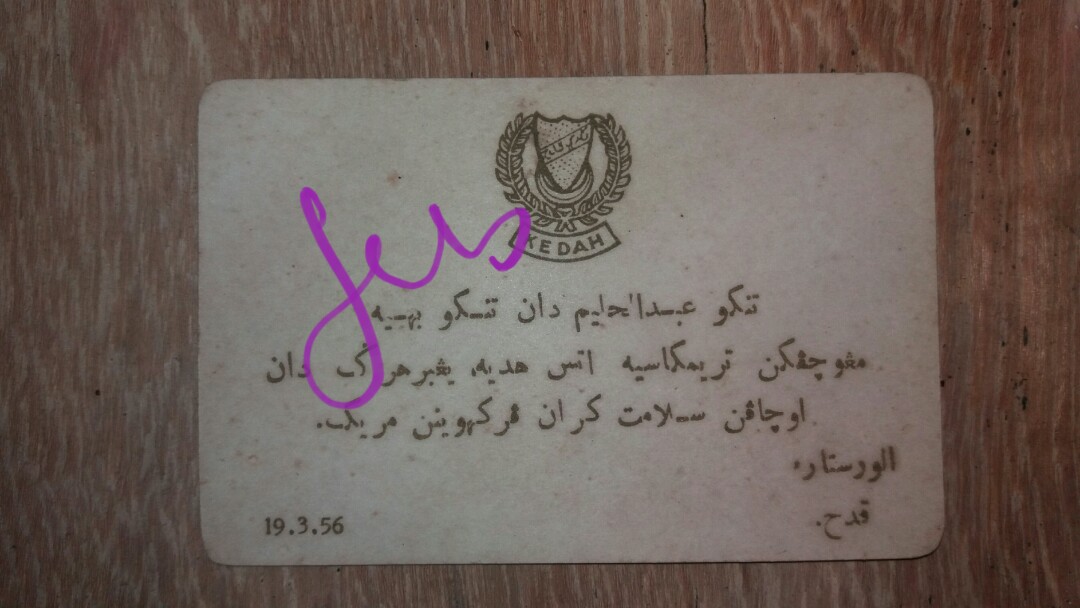 KEDAH
تنكو عبدالحليم دان تنكو بهيه
مڠوچڤكن تريمكاسيه اتس هديه٢ يڠبرهرݢ دان
اوچاڤن سلامت كران ڤركهوينن مريك.
الورستار،
قدح.
19.3.56